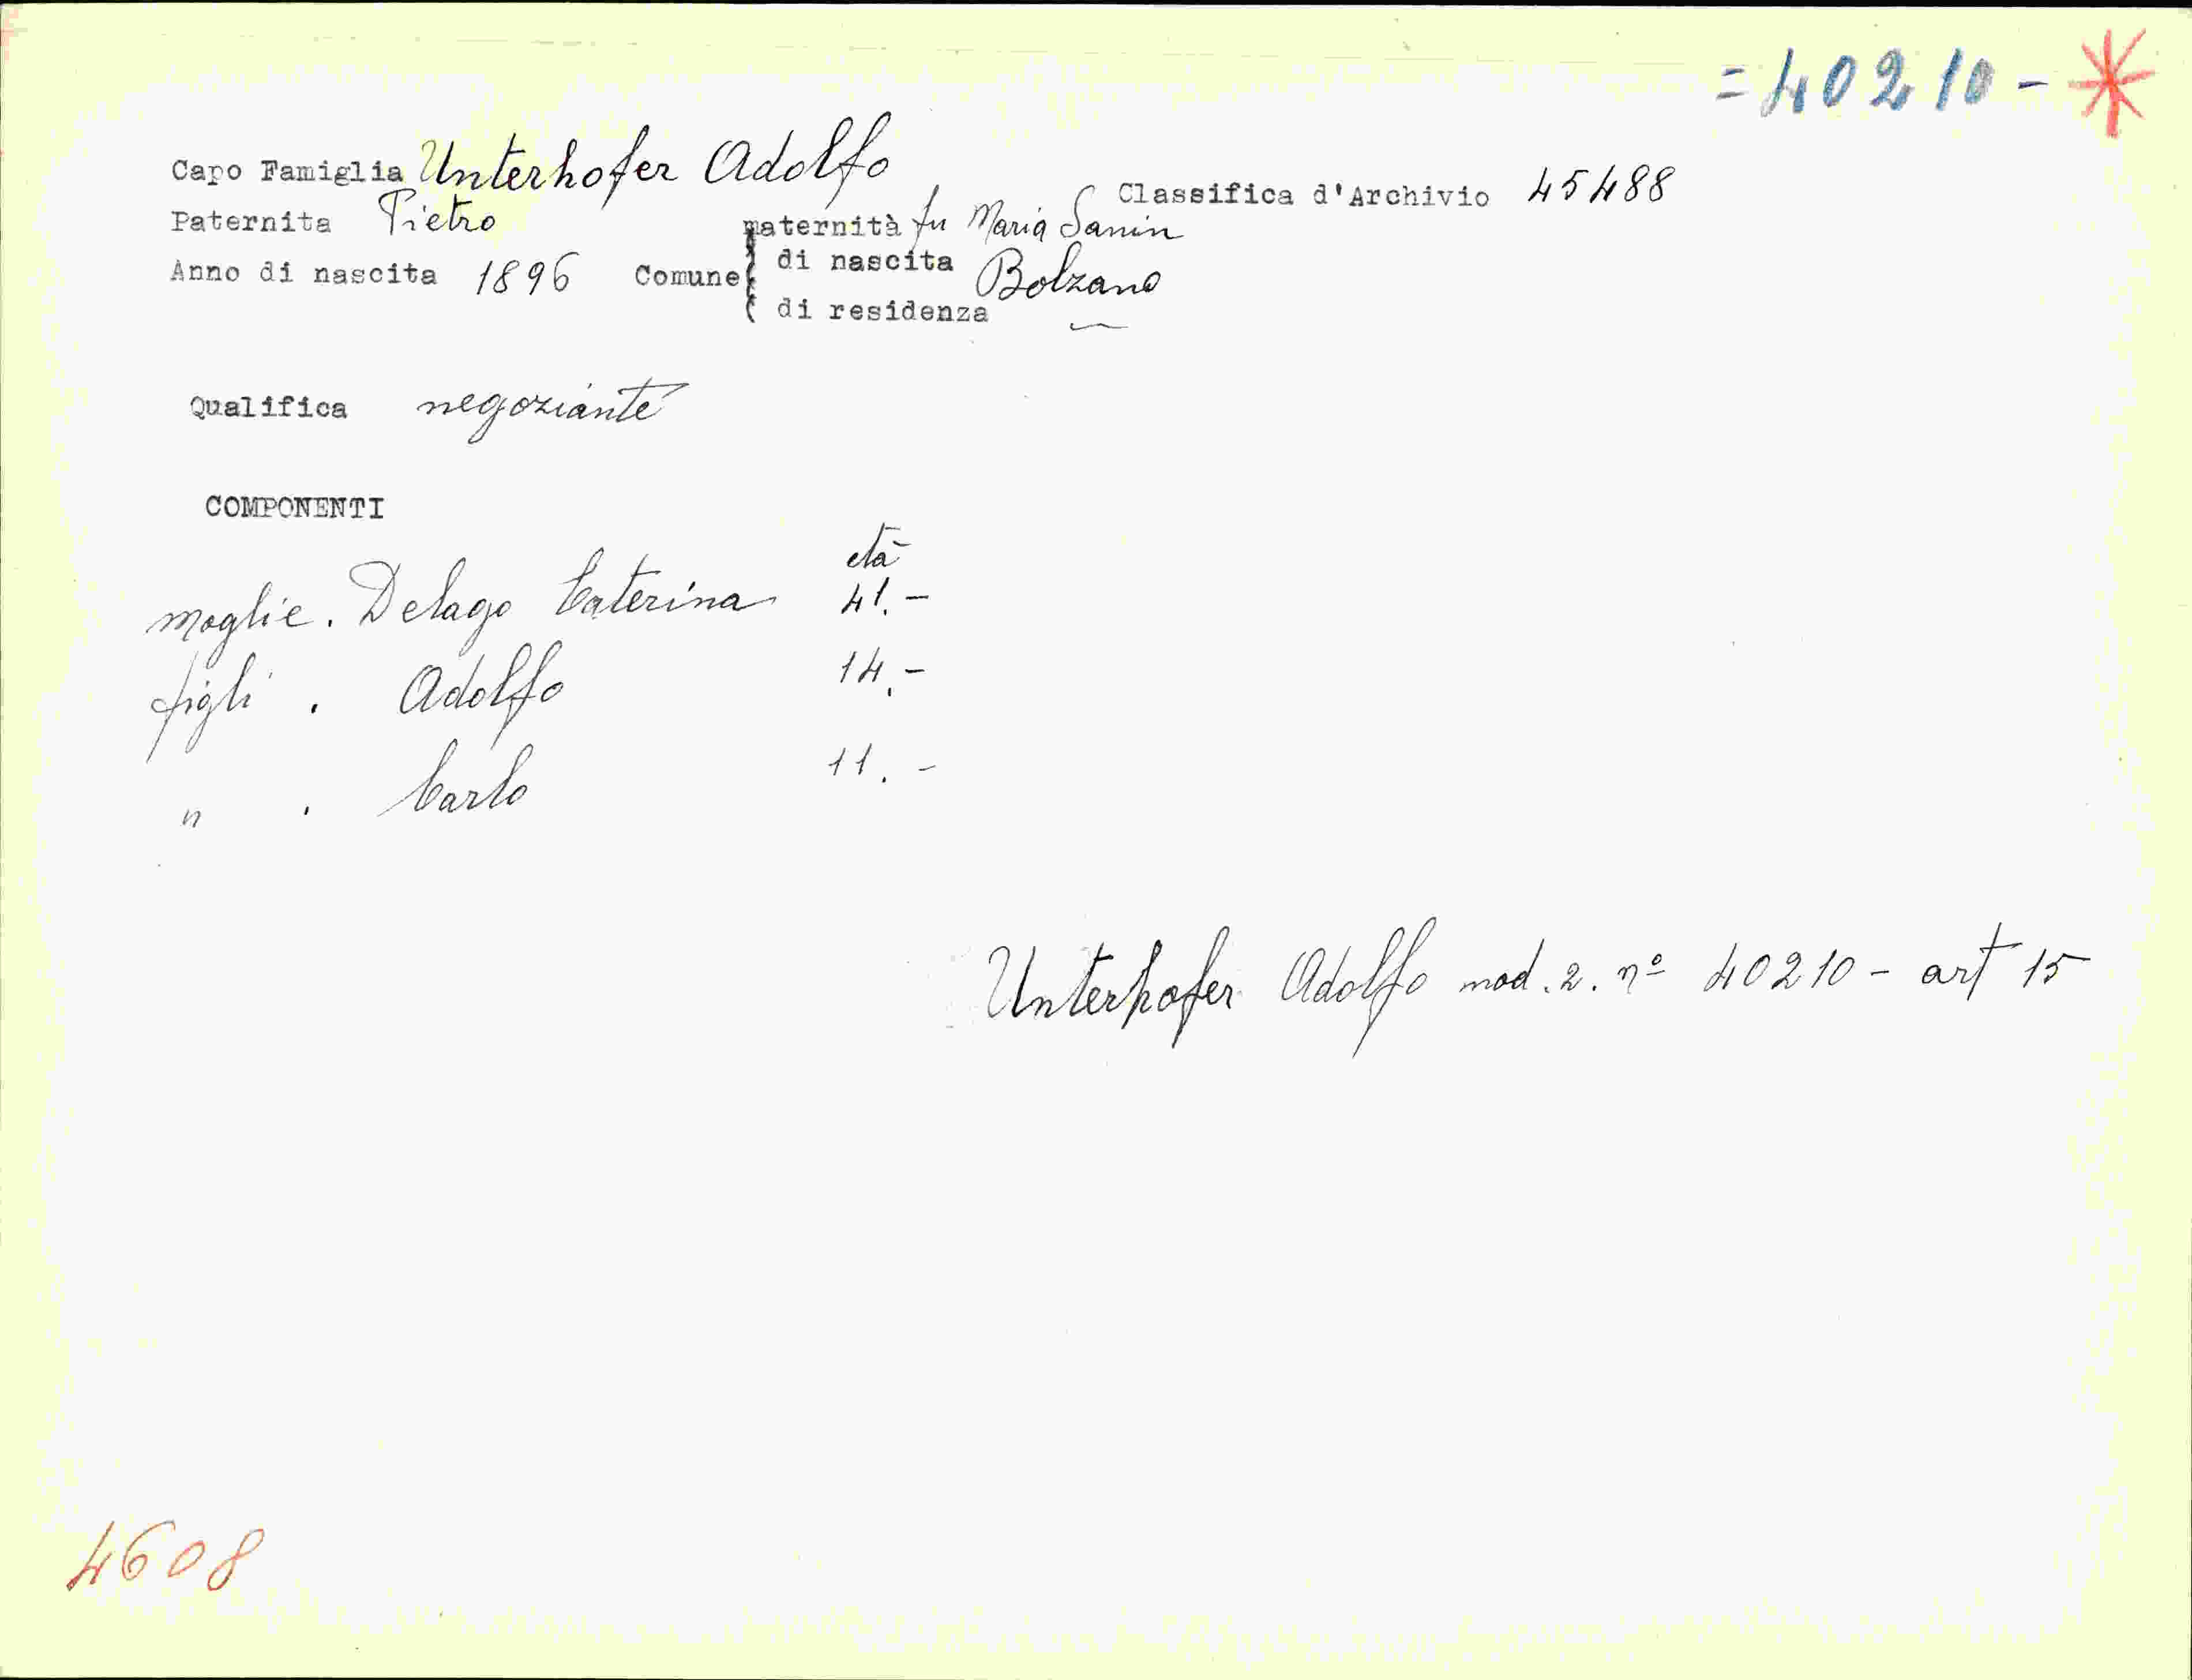 = 40210 - *
Capo Famiglia Unterhofer Adolfo
Classifica d'Archivio 45488
Paternita Pietro maternità fu Maria Sanin
Anno di nascita 1896 Comune di nascita Bolzano
di residenza
Qualifica negoziante
COMPONENTI
età
moglie. Delago Caterina 41.-
figli . Adolfo 14.-
" . Carlo 11.-
Unterhofer Adolfo mod. 2. nº 40210 - art 15
4608